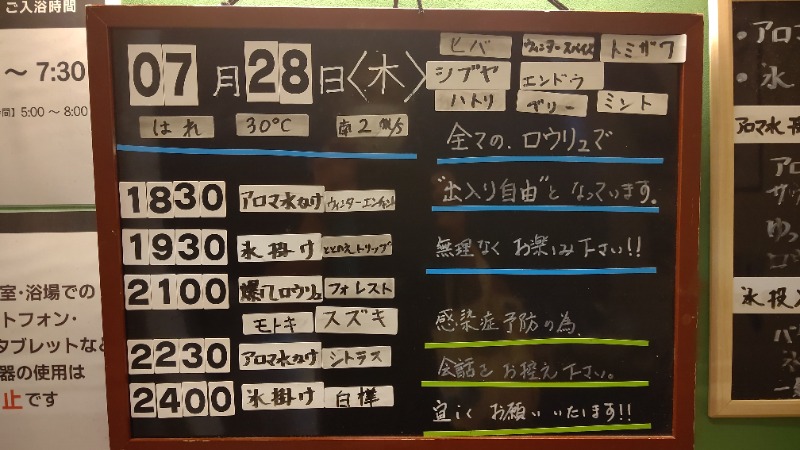 ご入浴時間
～ 7:30
間】5:00 ～ 8:00
室・浴場での
トフォン・
タブレットなど
器の使用は
止です
07月28日〈木〉
はれ 30℃ 南2m/s
ヒバ ウィンタースパイス トミザワ
シブヤ エンドウ
ハトリ ベリー ミント
1830 アロマ水かけ ウィンターエンチャント
1930 氷掛け ととのえトリップ
2100 爆風ロウリュ フォレスト
モトキ スズキ
2230 アロマ水かけ シトラス
2400 氷掛け 白樺
全ての、ロウリュで
"出入り自由"となっています。
無理なくお楽しみ下さい!!
感染症予防の為、
会話をお控え下さい。
宜しくお願いいたします!!
・アロ
・氷
アロマ水
アロ
サッ
ゆっ
氷投入